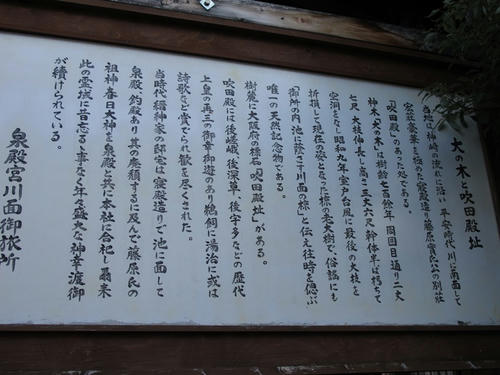 大の木と吹田殿址
当地は神崎の流れに沿い 平安時代 川に南面して
宏荘豪華を極めた寝殿造り藤原実氏公の別荘
「吹田殿」のあった処である。
神木「大の木」は樹齢七百余年 周囲目通り二丈
七尺 大枝伸長し高さ三丈六尺 幹体半ば朽ちて
空洞をなし昭和九年室戸台風に最後の大枝を
折損して現在の姿となった椋の老大樹で 俗謡にも
「御所の内池に蔭さす川面の椋」と伝え往時を偲ぶ
唯一の天然記念物である。
樹麓に大阪府の標石「吹田殿址」がある。
吹田殿には後嵯峨、後深草、後宇多などの歴代
上皇の再三の御幸御遊のあり鵜飼に湯治に或は
詩歌など賞でられ歓を尽くされた。
当時代 縉紳家の邸宅は寝殿造りで池に面して
泉殿、釣殿あり其の廃頽するに及んで藤原氏の
祖神春日大神を泉殿と共に本社に合祀し爾来
此の霊域に昔忍る事なく年々盛大な神幸渡御
が続けられている。
泉殿宮川面御旅所